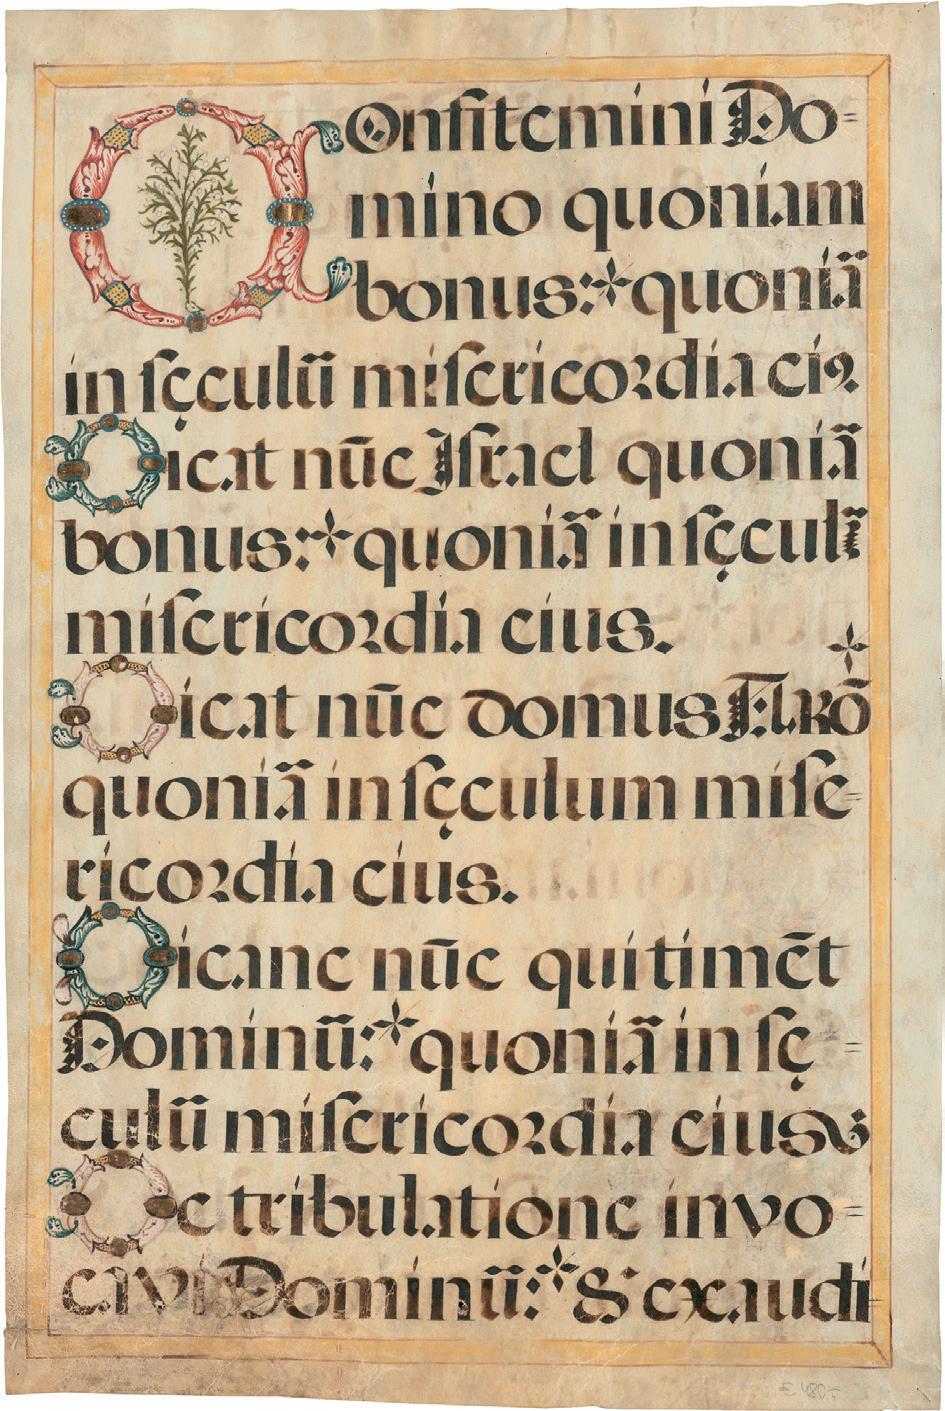 COnfitemini Do=
mino quoniam
bonus:✢quoniã
in sęculũ misericordia eiꝰ
Dicat nũc Israel quoniã
bonus:✢quoniã in sęculũ
misericordia eius.
✢
Dicat nũc domus Aarõ
quoniã in sęculum mise=
ricordia eius.
Dicanc nũc qui timẽt
Dominũ:✢quoniã in sę=
culũ misericordia eius
De tribulatione invo=
cavi Dominũ:✢& exaudi
€ 480,-